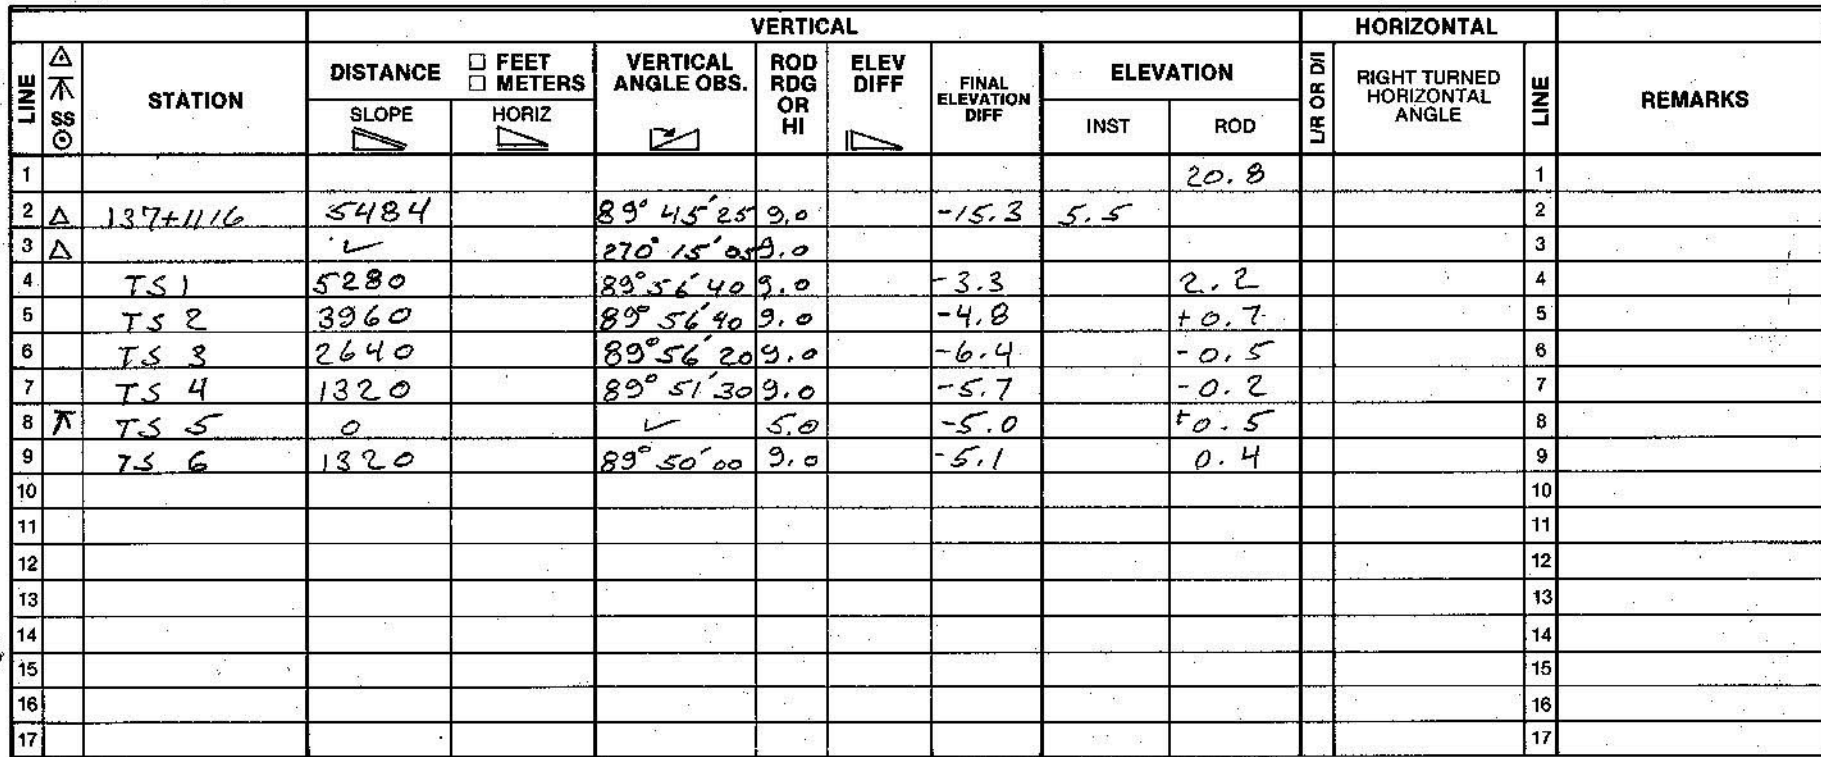 VERTICAL HORIZONTAL
LINE SS STATION DISTANCE □ FEET □ METERS SLOPE HORIZ VERTICAL ANGLE OBS. ROD RDG OR HI ELEV DIFF FINAL ELEVATION DIFF ELEVATION INST ROD L/R OR D/I RIGHT TURNED HORIZONTAL ANGLE LINE REMARKS
1 20.8 1
2 △ 137+1116 5484 89° 45' 25 9.0 -15.3 5.5 2
3 △ ✓ 270° 15' 05 9.0 3
4 TS 1 5280 89° 56' 40 9.0 -3.3 2.2 4
5 TS 2 3960 89° 56' 40 9.0 -4.8 +0.7 5
6 TS 3 2640 89° 56' 20 9.0 -6.4 -0.5 6
7 TS 4 1320 89° 51' 30 9.0 -5.7 -0.2 7
8 TS 5 0 ✓ 5.0 -5.0 +0.5 8
9 TS 6 1320 89° 50' 00 9.0 -5.1 0.4 9
10 10
11 11
12 12
13 13
14 14
15 15
16 16
17 17